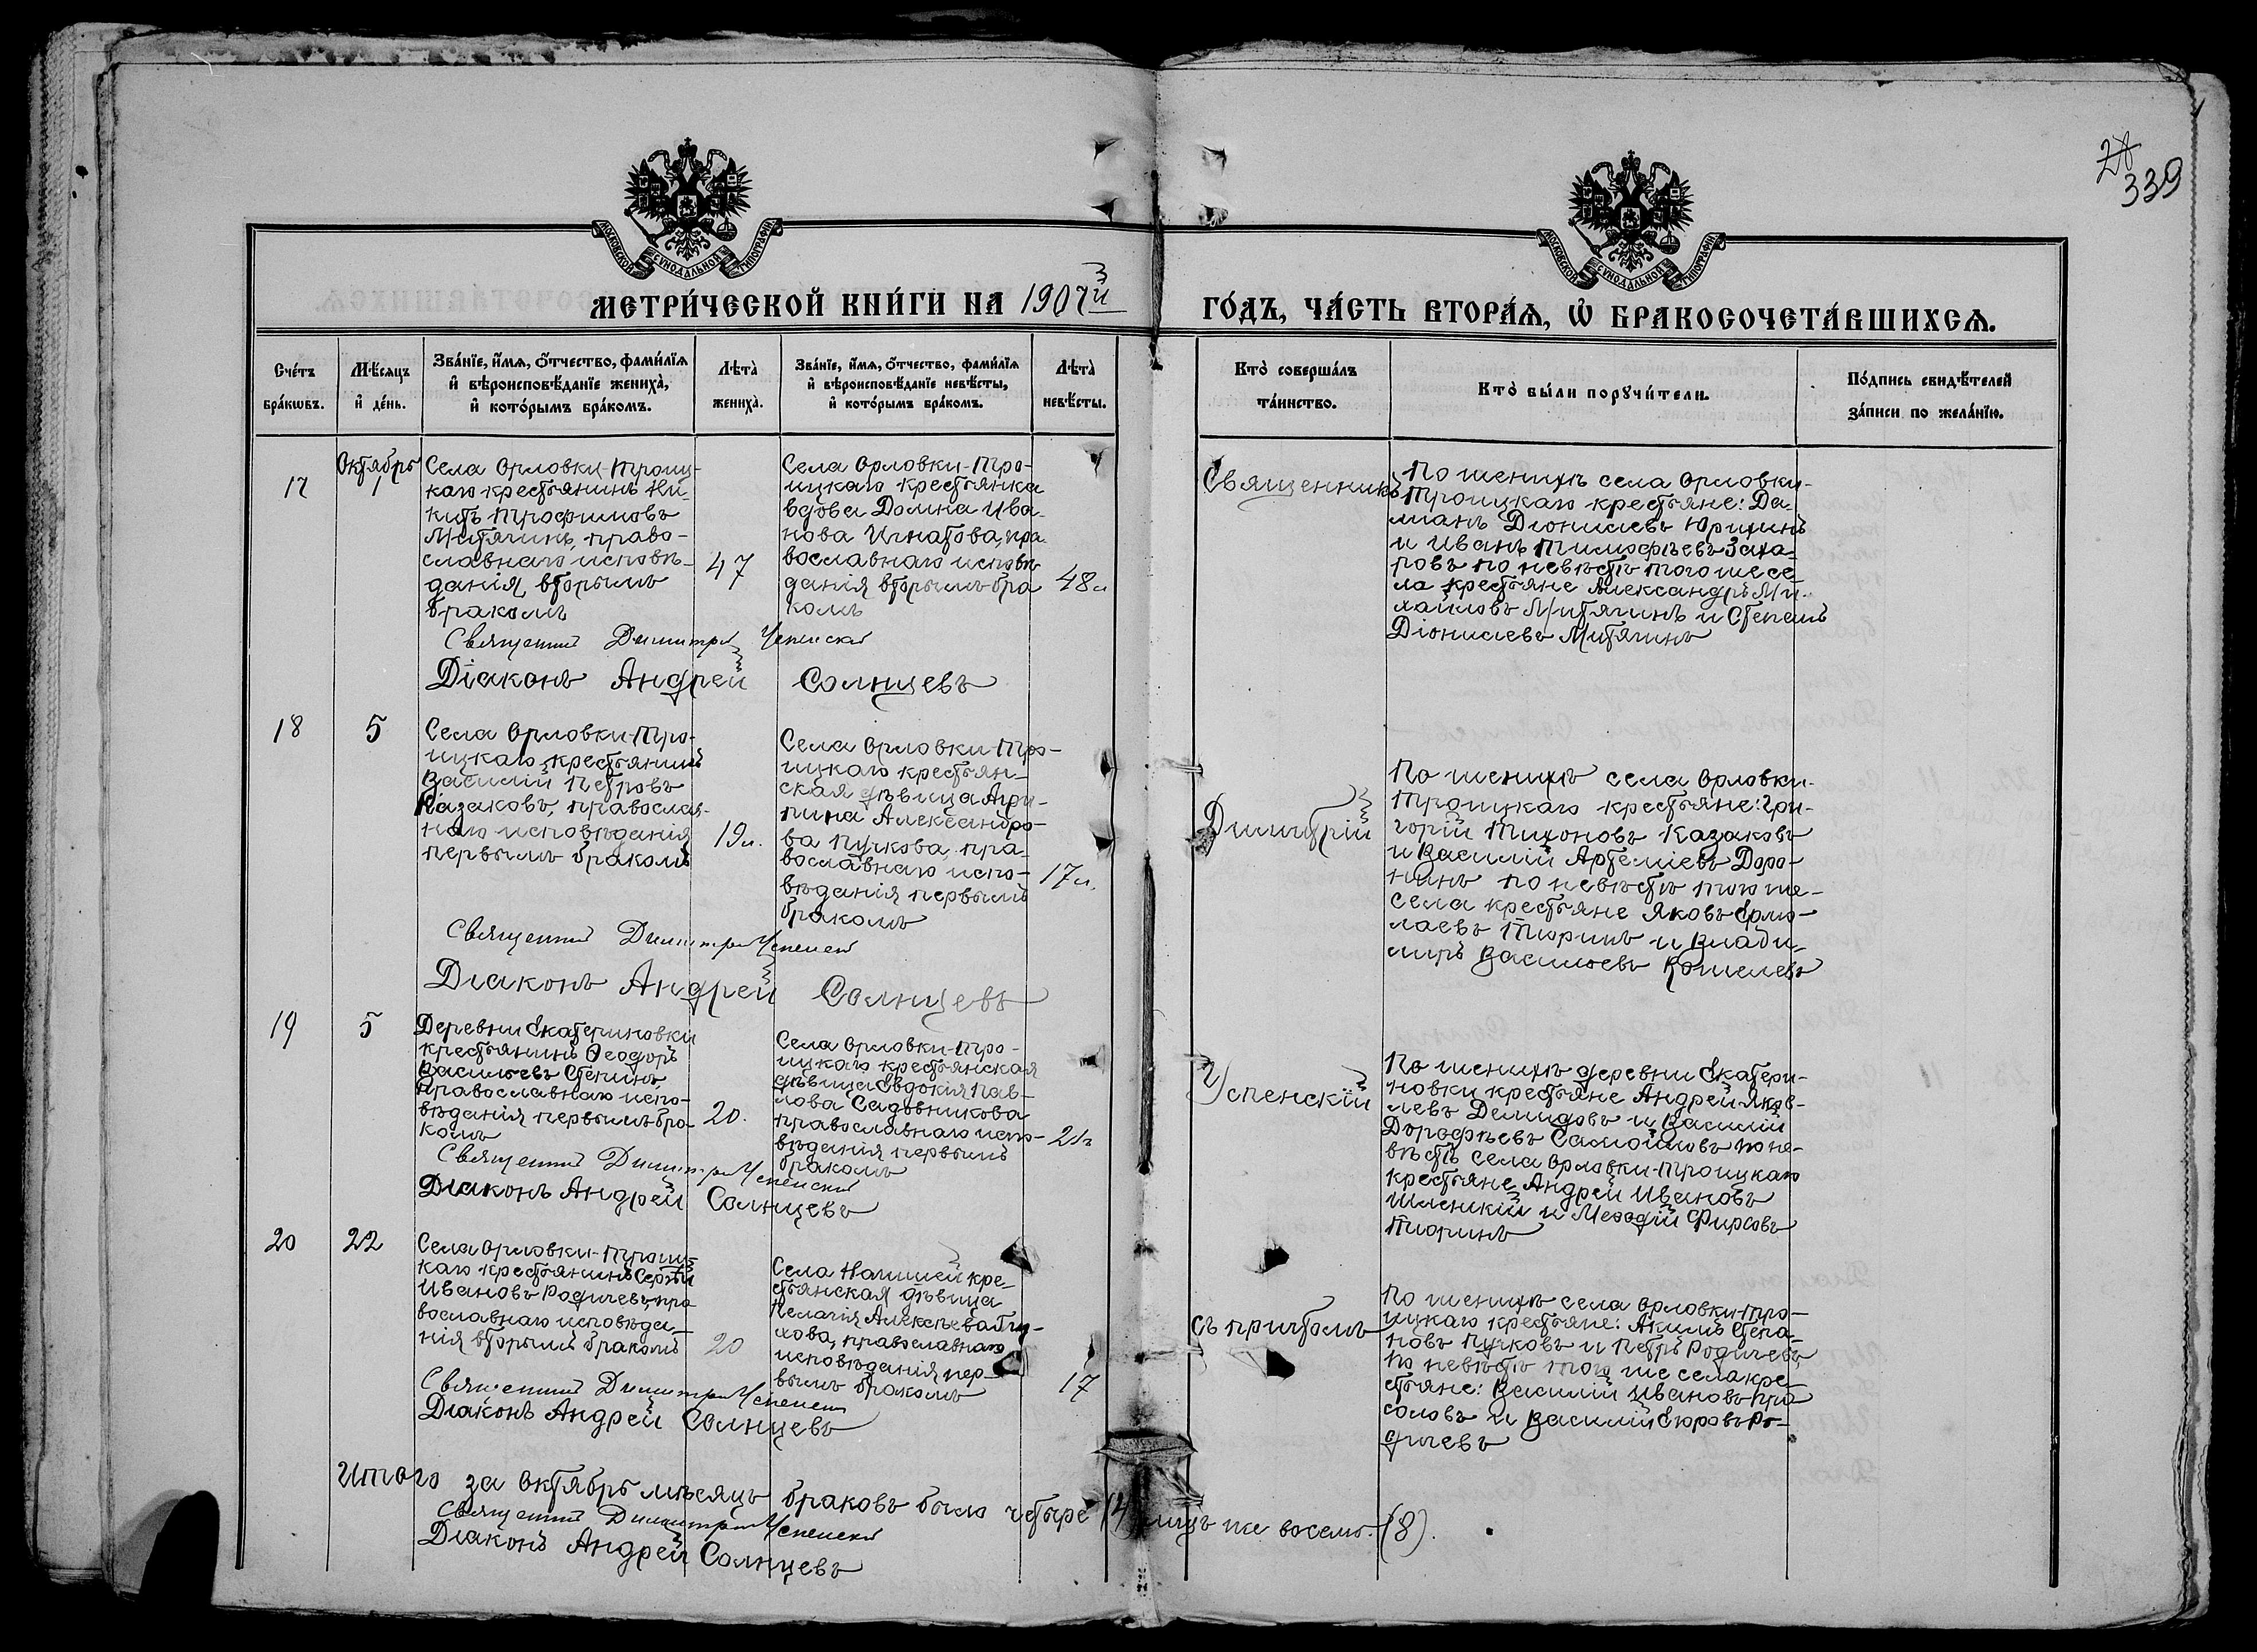 28
339
МОСКОВСКОЙ СУНОДАЛЬНОЙ ТИПОГРАФІИ
МОСКОВСКОЙ СУНОДАЛЬНОЙ ТИПОГРАФІИ
МЕТРИ́ЧЕСКОЙ КНИ́ГИ НА 1907й ГО́ДЪ, ЧА́СТЬ ВТОРА́Ѧ, Ѽ БРАКОСОЧЕТА́ВШИХСѦ.
Сче́тъ
бра́кѡвъ.
Мѣ́сѧцъ
и҆ де́нь.
Зва́нїе, и҆́мѧ, о҆́тчество, фами́лїѧ
и҆ вѣроисповѣ́данїе жениха̀,
и҆ кото́рымъ бра́комъ.
Лѣта̀
жениха̀.
Зва́нїе, и҆́мѧ, о҆́тчество, фами́лїѧ
и҆ вѣроисповѣ́данїе невѣ́сты,
и҆ кото́рымъ бра́комъ.
Лѣта̀
невѣ́сты.
Кто̀ соверша́лъ
та́инство.
Кто̀ бы́ли порꙋчи́тели.
По́дпись свидѣ́телей
за́писи по жела́нїю.
17
Октябрь
1
Села Орловки-Троиц-
каго крестьянинъ Ни-
китъ Трофимовъ
Митягинъ, право-
славнаго исповѣ-
данія, вторымъ
бракомъ
47
Села Орловки-Тро-
ицкаго крестьянка
вдова Домна Ива-
нова Игнатова, пра-
вославнаго исповѣ
данія вторымъ бра
комъ
48л
Священникъ
По женихѣ села Орловки-
Троицкаго крестьяне: Да-
міанъ Діонисіевъ Юрихинъ
и Иванъ Тимофѣевъ Заха-
ровъ по невѣстѣ того же се-
ла крестьяне Александръ Ми-
хайловъ Митягинъ и Степанъ
Діонисіевъ Митягинъ
Священникъ Димитрій Успенскій
Діаконъ Андрей Солнцевъ
18
5
Села Орловки-Тро-
ицкаго крестьянинъ
Василій Петровъ
Казаковъ, православ-
наго исповѣданія
первымъ бракомъ
19л.
Села Орловки-Тро-
ицкаго крестьян-
ская дѣвица Агри-
пина Александро-
ва Пучкова, пра-
вославнаго испо-
вѣданія первымъ
бракомъ
17л.
Димитрій
По женихѣ села Орловки-
Троицкаго крестьяне: Гри-
горій Тихоновъ Казаковъ
и Василій Артеміевъ Доро-
нинъ по невѣстѣ того же-
села крестьяне Яковъ Ермо-
лаевъ Тюринъ и Влади-
миръ Васильевъ Кошелевъ
Священникъ Димитрій Успенскій
Діаконъ Андрей Солнцевъ
19
5
Деревни Екатериновки
крестьянинъ Ѳеодоръ
Васильевъ Степинъ,
православнаго испо-
вѣданія первымъ бра-
комъ
20.
Села Орловки-Тро-
ицкаго крестьянская
дѣвица Евдокія Пав-
лова Садовникова
православнаго испо-
вѣданія первымъ
бракомъ
21л
Успенскій
По женихѣ деревни Екатери-
новки крестьяне Андрей Яков-
левъ Демидовъ и Василій
Дорофѣевъ Самойловъ по не-
вѣстѣ села Орловки-Троицкаго
крестьяне Андрей Ивановъ
и Меѳодій Фирсовъ
Тюринъ
Священникъ Димитрій Успенскій
Діаконъ Андрей Солнцевъ
20
22
Села Орловки-Троиц-
каго крестьянинъ Сергѣй
Ивановъ Родичевъ, пра
вославнаго исповѣда-
нія вторымъ бракомъ
20
Села кре-
стьянская дѣвица
Пелагія Алексѣева
православнаго
исповѣданія пер-
вымъ бракомъ
17
съ причтомъ
По женихѣ села Орловки-Тро-
ицкаго крестьяне: Акимъ Степа-
новъ Пучковъ и Петръ Родичевъ,
по невѣстѣ того же села кре-
стьяне: Василій Ивановъ
и Василій Ро-
дичевъ
Священникъ Димитрій Успенскій
Діаконъ Андрей Солнцевъ
Итого за Октябрь мѣсяцъ браковъ было четыре (4) лицъ же восемь (8).
Священникъ Димитрій Успенскій
Діаконъ Андрей Солнцевъ